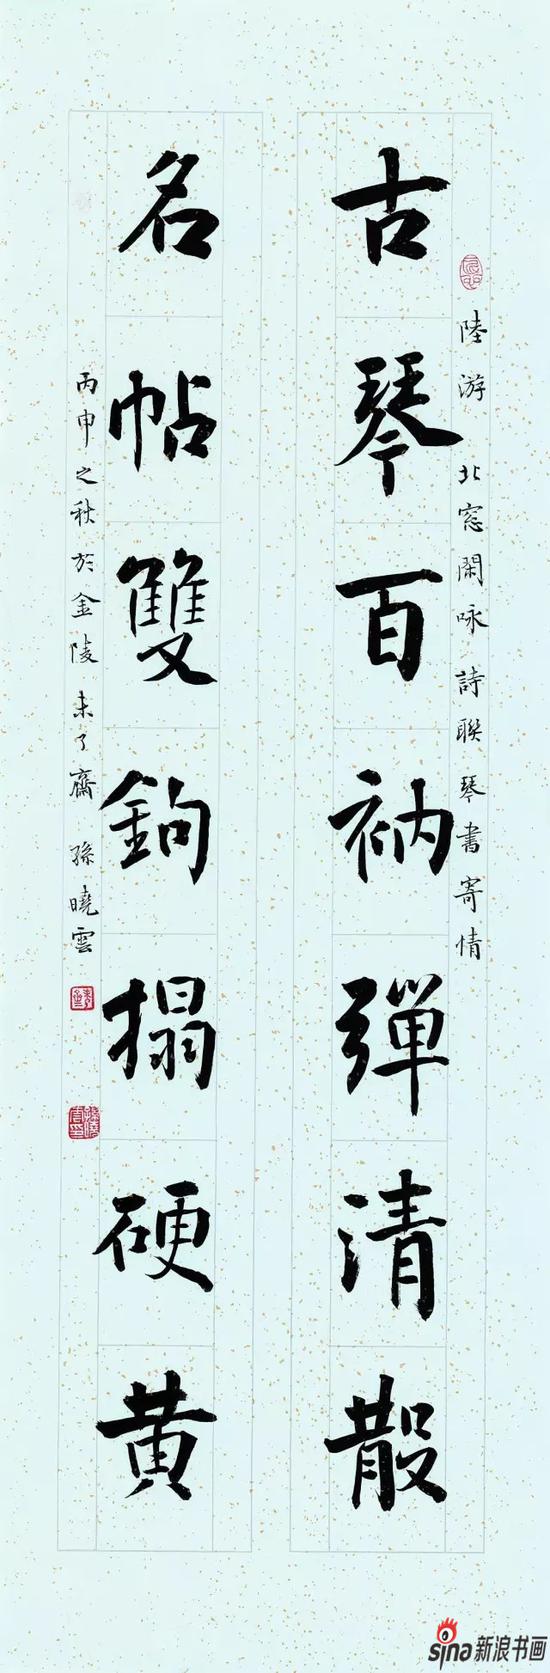 陸游北窓閑咏詩聯琴書寄情
古琴百衲彈清散
名帖雙鉤搨硬黄
丙申之秋於金陵未了齋孫曉雲
sina新浪书画